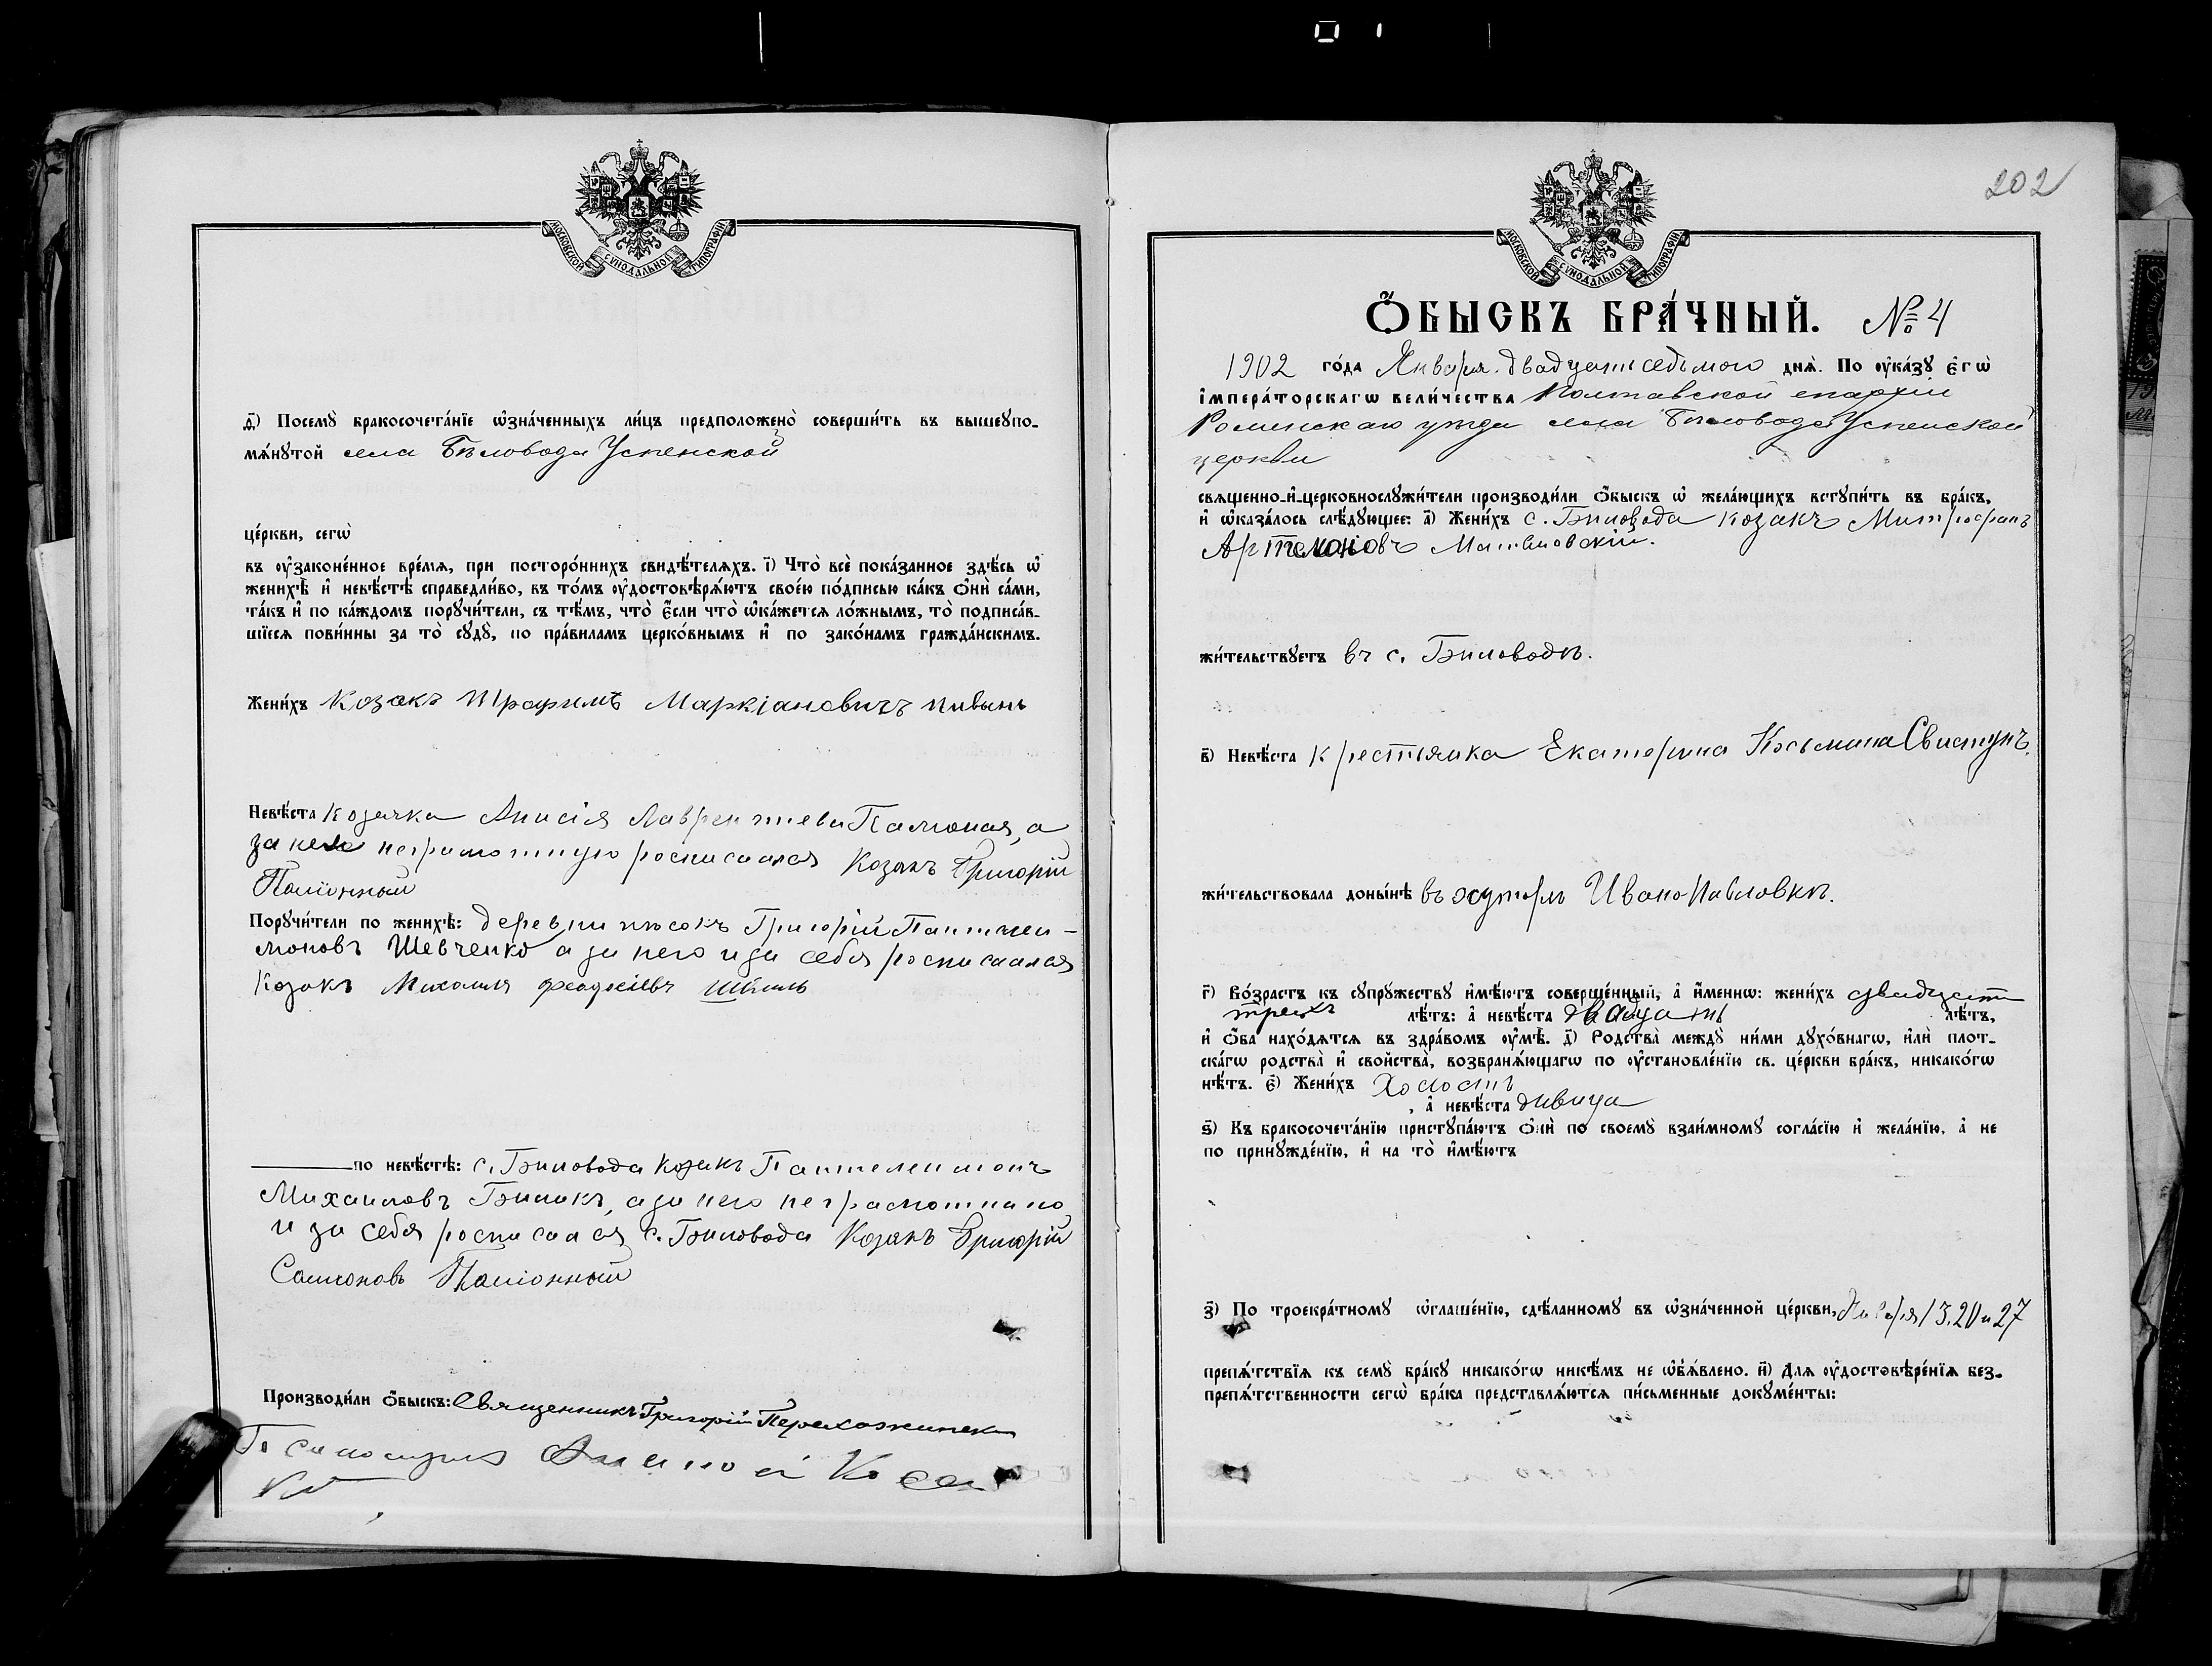 МОСКОВСКОЙ СѴНОДАЛЬНОЙ ТИПОГРАФІИ
д҃) Посемꙋ̀ бракосочета́нїе ѡ҆зна́ченныхъ ли́цъ предположено̀ соверши́ть въ вышеупо-
мѧ́нꙋтой села Бѣловода Успенской
це́ркви, сегѡ̀
въ оу҆законе́нное вре́мѧ, при посторо́ннихъ свидѣ́телѧхъ. і҃) Что̀ всѐ пока́занное здѣ́сь ѡ҆
женихѣ̀ и҆ невѣ́стѣ справедли́во, въ то́мъ оу҆достовѣрѧ́ютъ свое́ю по́дписью ка́къ ѻ҆нѝ са́ми,
та́къ и҆ по ка́ждомъ порꙋчи́тели, съ тѣ́мъ, что̀ є҆́сли что̀ ѡ҆ка́жетсѧ ло́жнымъ, то̀ подписа́в-
шїесѧ пови́нны за то̀ сꙋдꙋ̀, по пра́виламъ церко́внымъ и҆ по зако́намъ гражда́нскимъ.
Жени́хъ Козакъ Трофимъ Маркіановичъ Пивынь
Невѣ́ста Козачка Анисія Лаврентіева Паліоная, а
за нея неграмотную росписался Козакъ Григорій
Паліонный
Порꙋчи́тели по женихѣ̀: деревни Пѣсокъ Григорій Пантелеи-
моновъ Шевченко а за него и за себя росписался
Козакъ Михаилъ Феодосіевъ
по невѣ́стѣ: с. Бѣловода Козакъ Пантелеимонъ
Михаиловъ Билыкъ, а за него неграмотнаго
и за себя росписался с. Бѣловода Козакъ Григорій
Самсоновъ Паліонный
Производи́ли ѻ҆́быскъ: Священникъ Григорій
Псаломщикъ
202
МОСКОВСКОЙ СѴНОДАЛЬНОЙ ТИПОГРАФІИ
Ѻ҆́БЫСКЪ БРА́ЧНЫЙ. № 4
1902 го́да Января двадцать седьмого днѧ̀. По оу҆ка́зꙋ є҆гѡ̀
і҆мпера́торскагѡ вели́чества Полтавской епархіи
Роменскаго уѣзда села Бѣловода Успенской
церкви
свѧщенно-и҆-церковнослꙋжи́тели производи́ли ѻ҆́быскъ ѡ҆ жела́ющихъ встꙋпи́ть въ бра́къ,
и҆ ѡ҆каза́лось слѣ́дꙋющее: а҃) Жени́хъ с. Бѣловода козакъ Митрофанъ
Артемоновъ
жи́тельствꙋетъ въ с. Бѣловодѣ.
в҃) Невѣ́ста Крестьянка Екатерина Косьмина Свистунъ.
жи́тельствовала доны́нѣ въ хуторѣ Ивано-Павловкѣ.
г҃) Во́зрастъ къ сꙋпрꙋ́жествꙋ и҆мѣ́ютъ соверше́нный, а҆ и҆́меннѡ: жени́хъ двадцати
трехъ лѣ́тъ: а҆ невѣ́ста двадцать лѣ́тъ,
и҆ ѻ҆́ба нахо́дѧтсѧ въ здра́вомъ оу҆мѣ̀. д҃) Родства̀ междꙋ̀ ни́ми дꙋхо́внагѡ, и҆лѝ плот-
ска́гѡ родства̀ и҆ свойства̀, возбранѧ́ющагѡ по оу҆становле́нїю св. це́ркви бра́къ, никако́гѡ
нѣ́тъ. є҃) Жени́хъ холостъ
, а҆ невѣ́ста дѣвица
ѕ҃) Къ бракосочета́нїю пристꙋпа́ютъ ѻ҆нѝ по своемꙋ̀ взаи́мному согла́сїю и҆ жела́нїю, а҆ не
по принꙋжде́нїю, и҆ на то̀ и҆мѣ́ютъ
з҃) По троекра́тномꙋ ѡ҆глаше́нїю, сдѣ́ланномꙋ въ ѡ҆зна́ченной це́ркви, Января 13, 20 и 27
препѧ́тствїѧ къ семꙋ̀ бра́кꙋ никако́гѡ никѣ́мъ не ѡ҆б̾ѧ́влено. и҃) Длѧ оу҆достовѣре́нїѧ без-
препѧ́тственности сегѡ̀ бра́ка представлѧ́ютсѧ пи́сьменные докꙋме́нты: